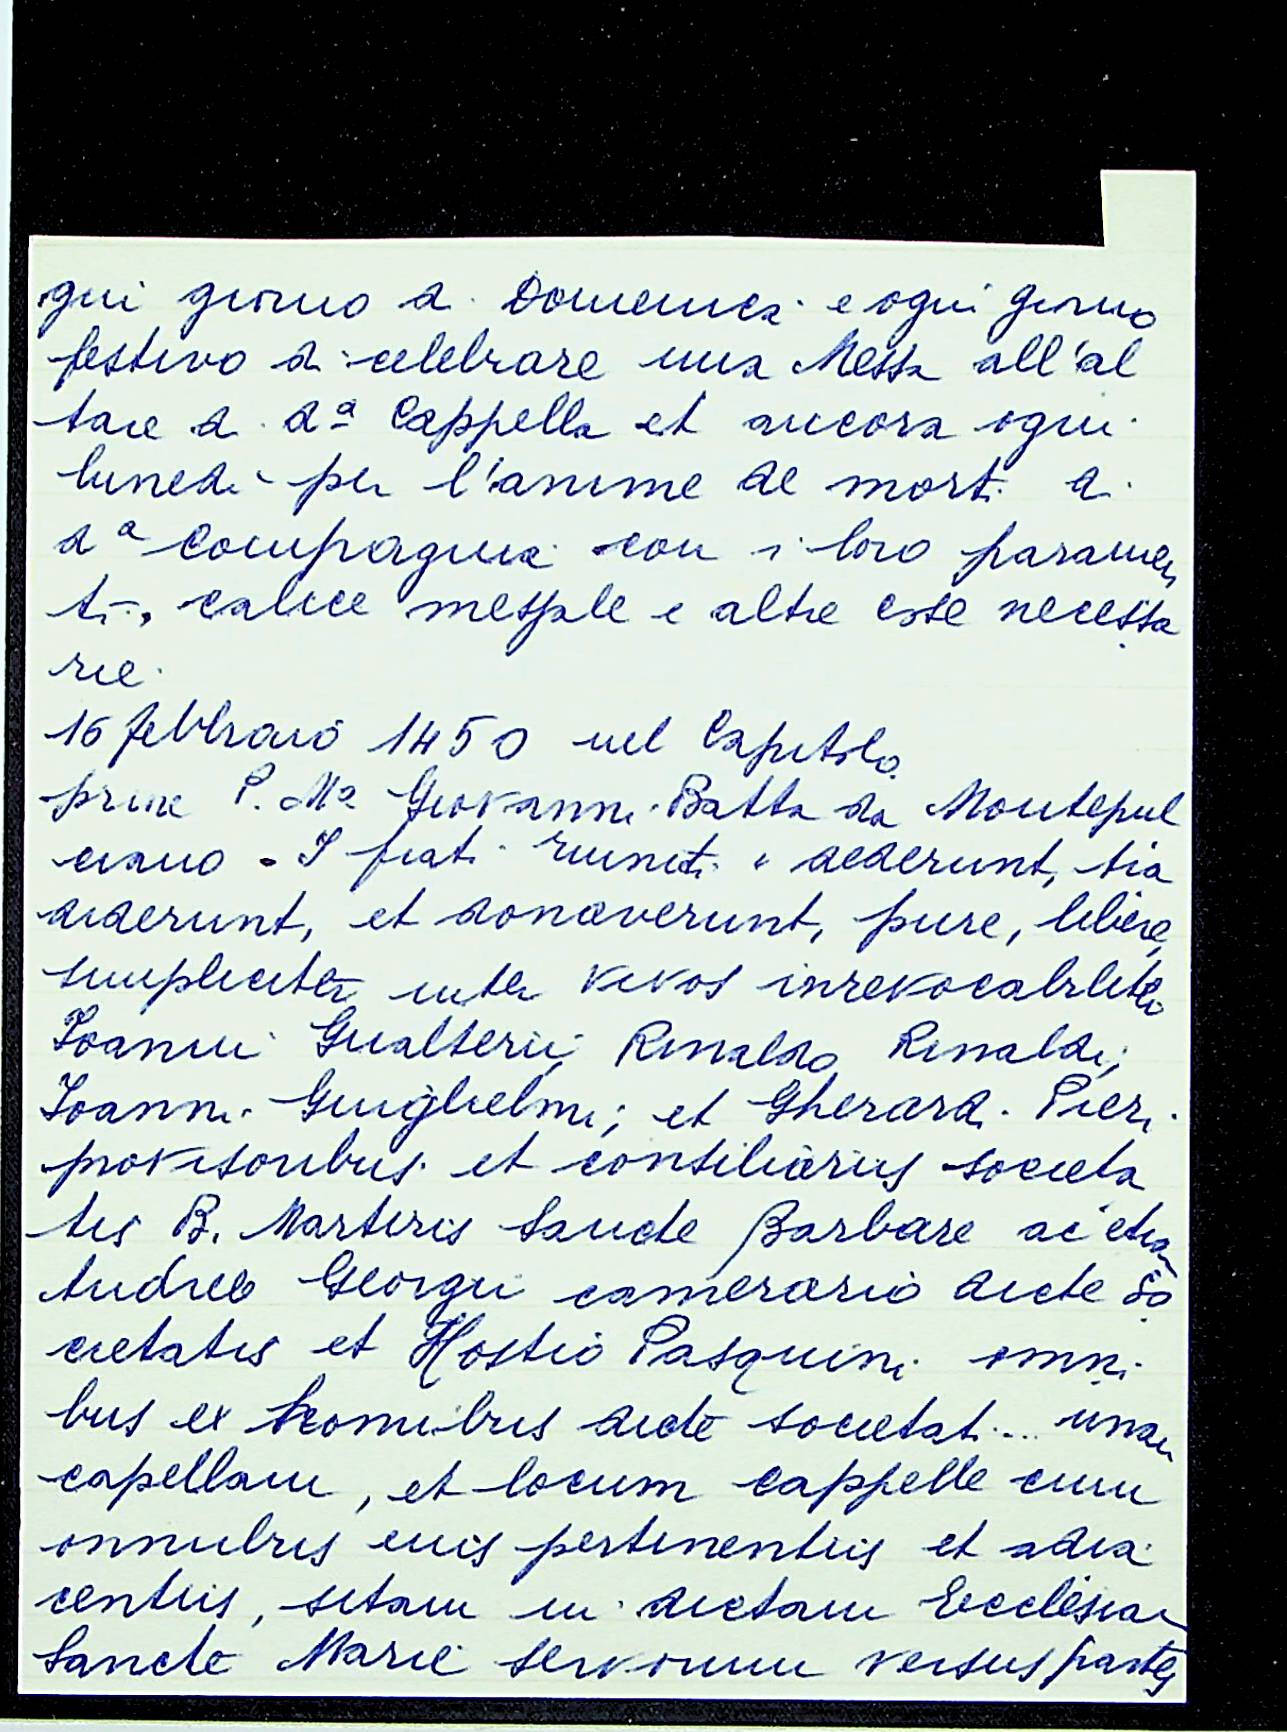 gni giorno di Domenica e ogni giorno
festivo di celebrare una Messa all'al
tare di dª Cappella et ancora ogni
lunedì per l'anime de morti di
dª Compagnia con i loro paramen
ti, calice messale e altre cose necessa
rie.
16 febbraio 1450 nel Capitolo
prine P. Mº Giovanni Batta da Montepul
ciano. I frati riuniti "dederunt, tra
diderunt, et donaverunt, pure, libere,
simpliciter inter vivos inrevocabiliter
Ioanni Gualterii, Rinaldo Rinaldi;
Ioanni Guiglielmi; et Gherardi Pieri
provisoribus et consiliariis societa
tis B. Martiris Sancte Barbare ac etiam
Andree Georgii camerario dicte so
cietatis et Hostio Pasquini omni
bus ex hominibus dicte societati... unam
capellam, et locum cappelle cum
omnibus euis pertinentiis et adia
centiis, sitam in dictam Ecclesiam
Sancte Marie servorum versus partes